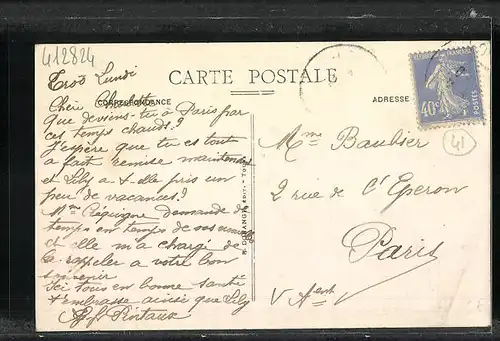 412824
Lundi
CARTE POSTALE
CORRESPONDANCE
ADRESSE
40c
POSTES
41
Chère Charlotte
Que deviens-tu à Paris par
ces temps chauds?
J'espère que tu es tout
à fait remise maintenant
et Lily a-t-elle pris un
peu de vacances?
Mme demande de
temps en temps de vos nouvelles
et elle m'a chargé de
la rappeler a votre bon
souvenir
Ici tous en bonne santé
t'embrasse ainsi que Lily
Mme Baubier
2 rue de l'Eperon
Paris